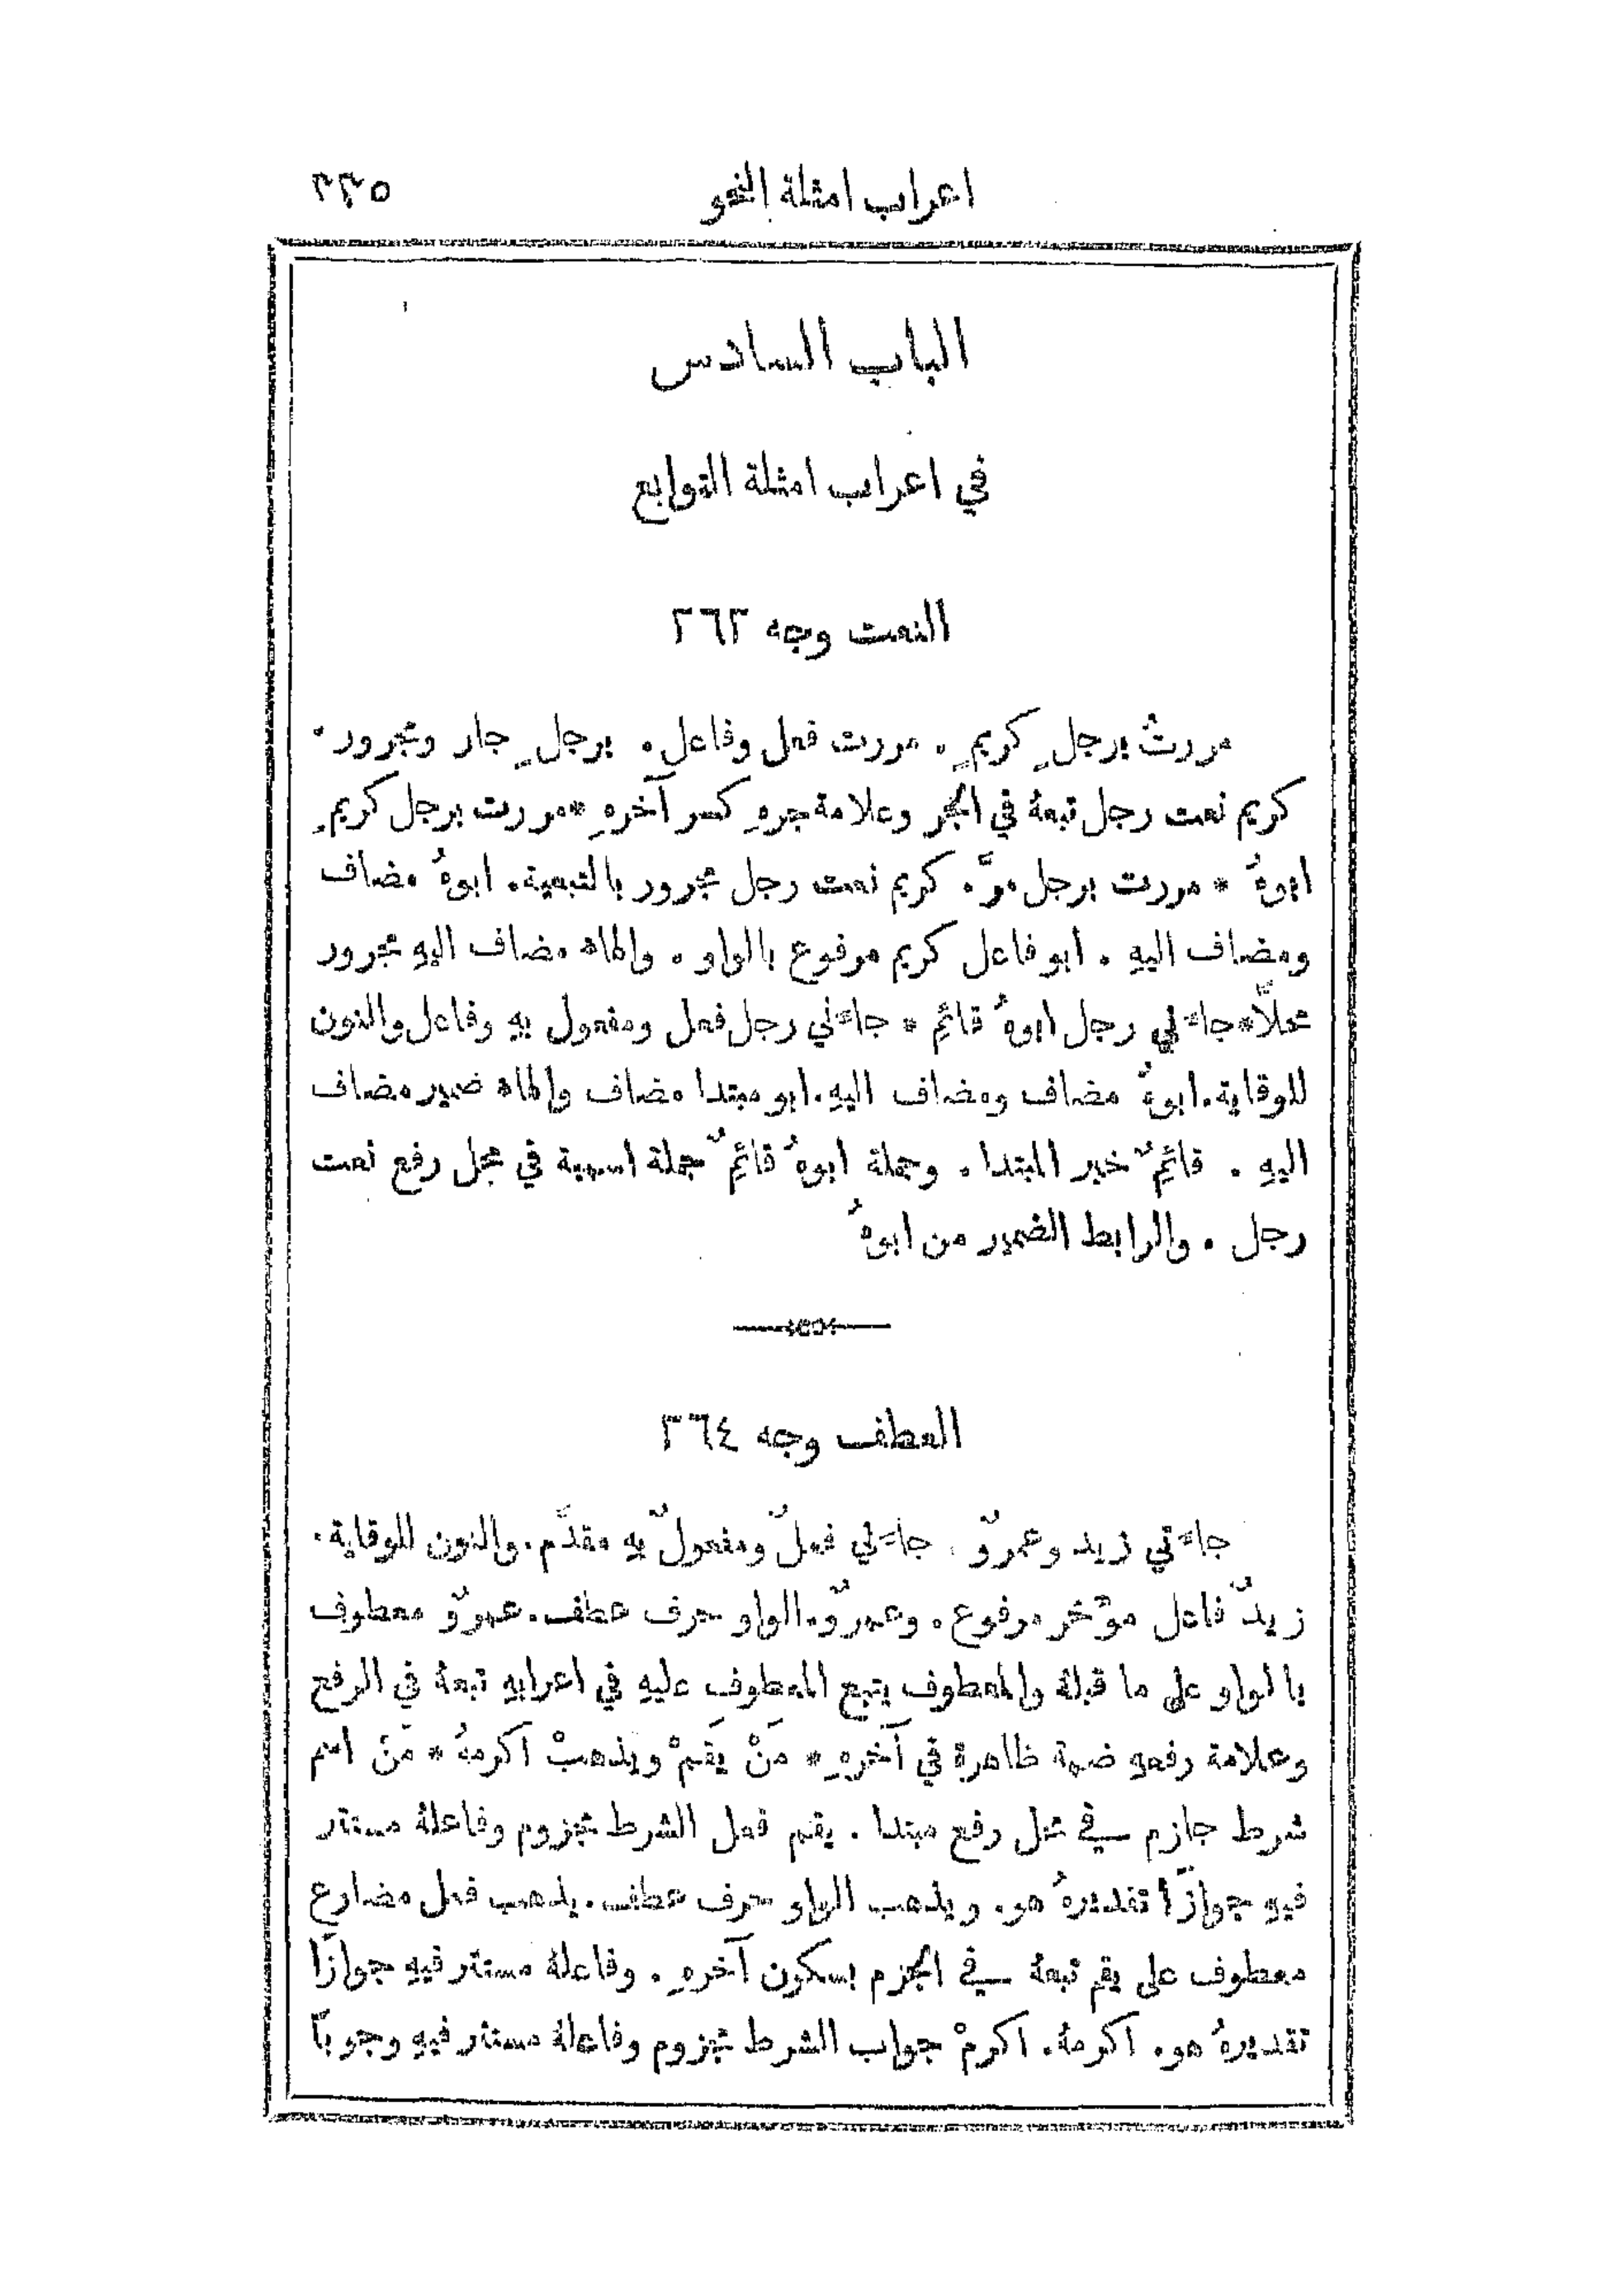 اعراب امثلة النحو
٣٣٥
الباب السادس
في اعراب امثلة التوابع
النعت وجه ٢٦٢
مررتُ برجلٍ كريمٍ. مررت فعل وفاعل. برجلٍ جار ومجرور.
كريم نعت رجل تبعهُ في الجر وعلامة جرهِ كسر آخرهِ * مررت برجل كريمٍ
ابوهُ * مررت برجل مرَّ. كريم نعت رجل مجرور بالتبعية. ابوهُ مضاف
ومضاف اليهِ. ابو فاعل كريم مرفوع بالواو. والهاء مضاف اليهِ مجرور
محلاًّ * جاءني رجل ابوهُ قائم * جاءني رجل فعل ومفعول بهِ وفاعل والنون
للوقاية. ابوهُ مضاف ومضاف اليهِ. ابو مبتدا مضاف والهاء ضمير مضاف
اليهِ. قائمٌ خبر المبتدا. وجملة ابوهُ قائمٌ جملة اسمية في محل رفع نعت
رجل. والرابط الضمير من ابوهُ
العطف وجه ٢٦٤
جاءني زيد وعمرٌو. جاءني فعلٌ ومفعولٌ بهِ مقدَّم. والنون للوقاية.
زيدٌ فاعل موَّخر مرفوع. وعمرٌو. الواو حرف عطف. عمرٌو معطوف
بالواو على ما قبلهُ والمعطوف يتبع المعطوف عليهِ في اعرابهِ تبعهُ في الرفع
وعلامة رفعهِ ضمة ظاهرة في آخرهِ * مَنْ يَقمْ ويذهبْ اكرمهُ * مَنْ اسم
شرط جازم في محل رفع مبتدا. يقم فعل الشرط مجزوم وفاعلهُ مستتر
فيهِ جوازًا تقديرهُ هو. ويذهب الواو حرف عطف. يذهب فعل مضارع
معطوف على يقم تبعهُ في الجزم بسكون آخرهِ. وفاعلهُ مستتر فيهِ جوازًا
تقديرهُ هو. اكرمهُ. اكرمْ جواب الشرط مجزوم وفاعلهُ مستتر فيهِ وجوبًا